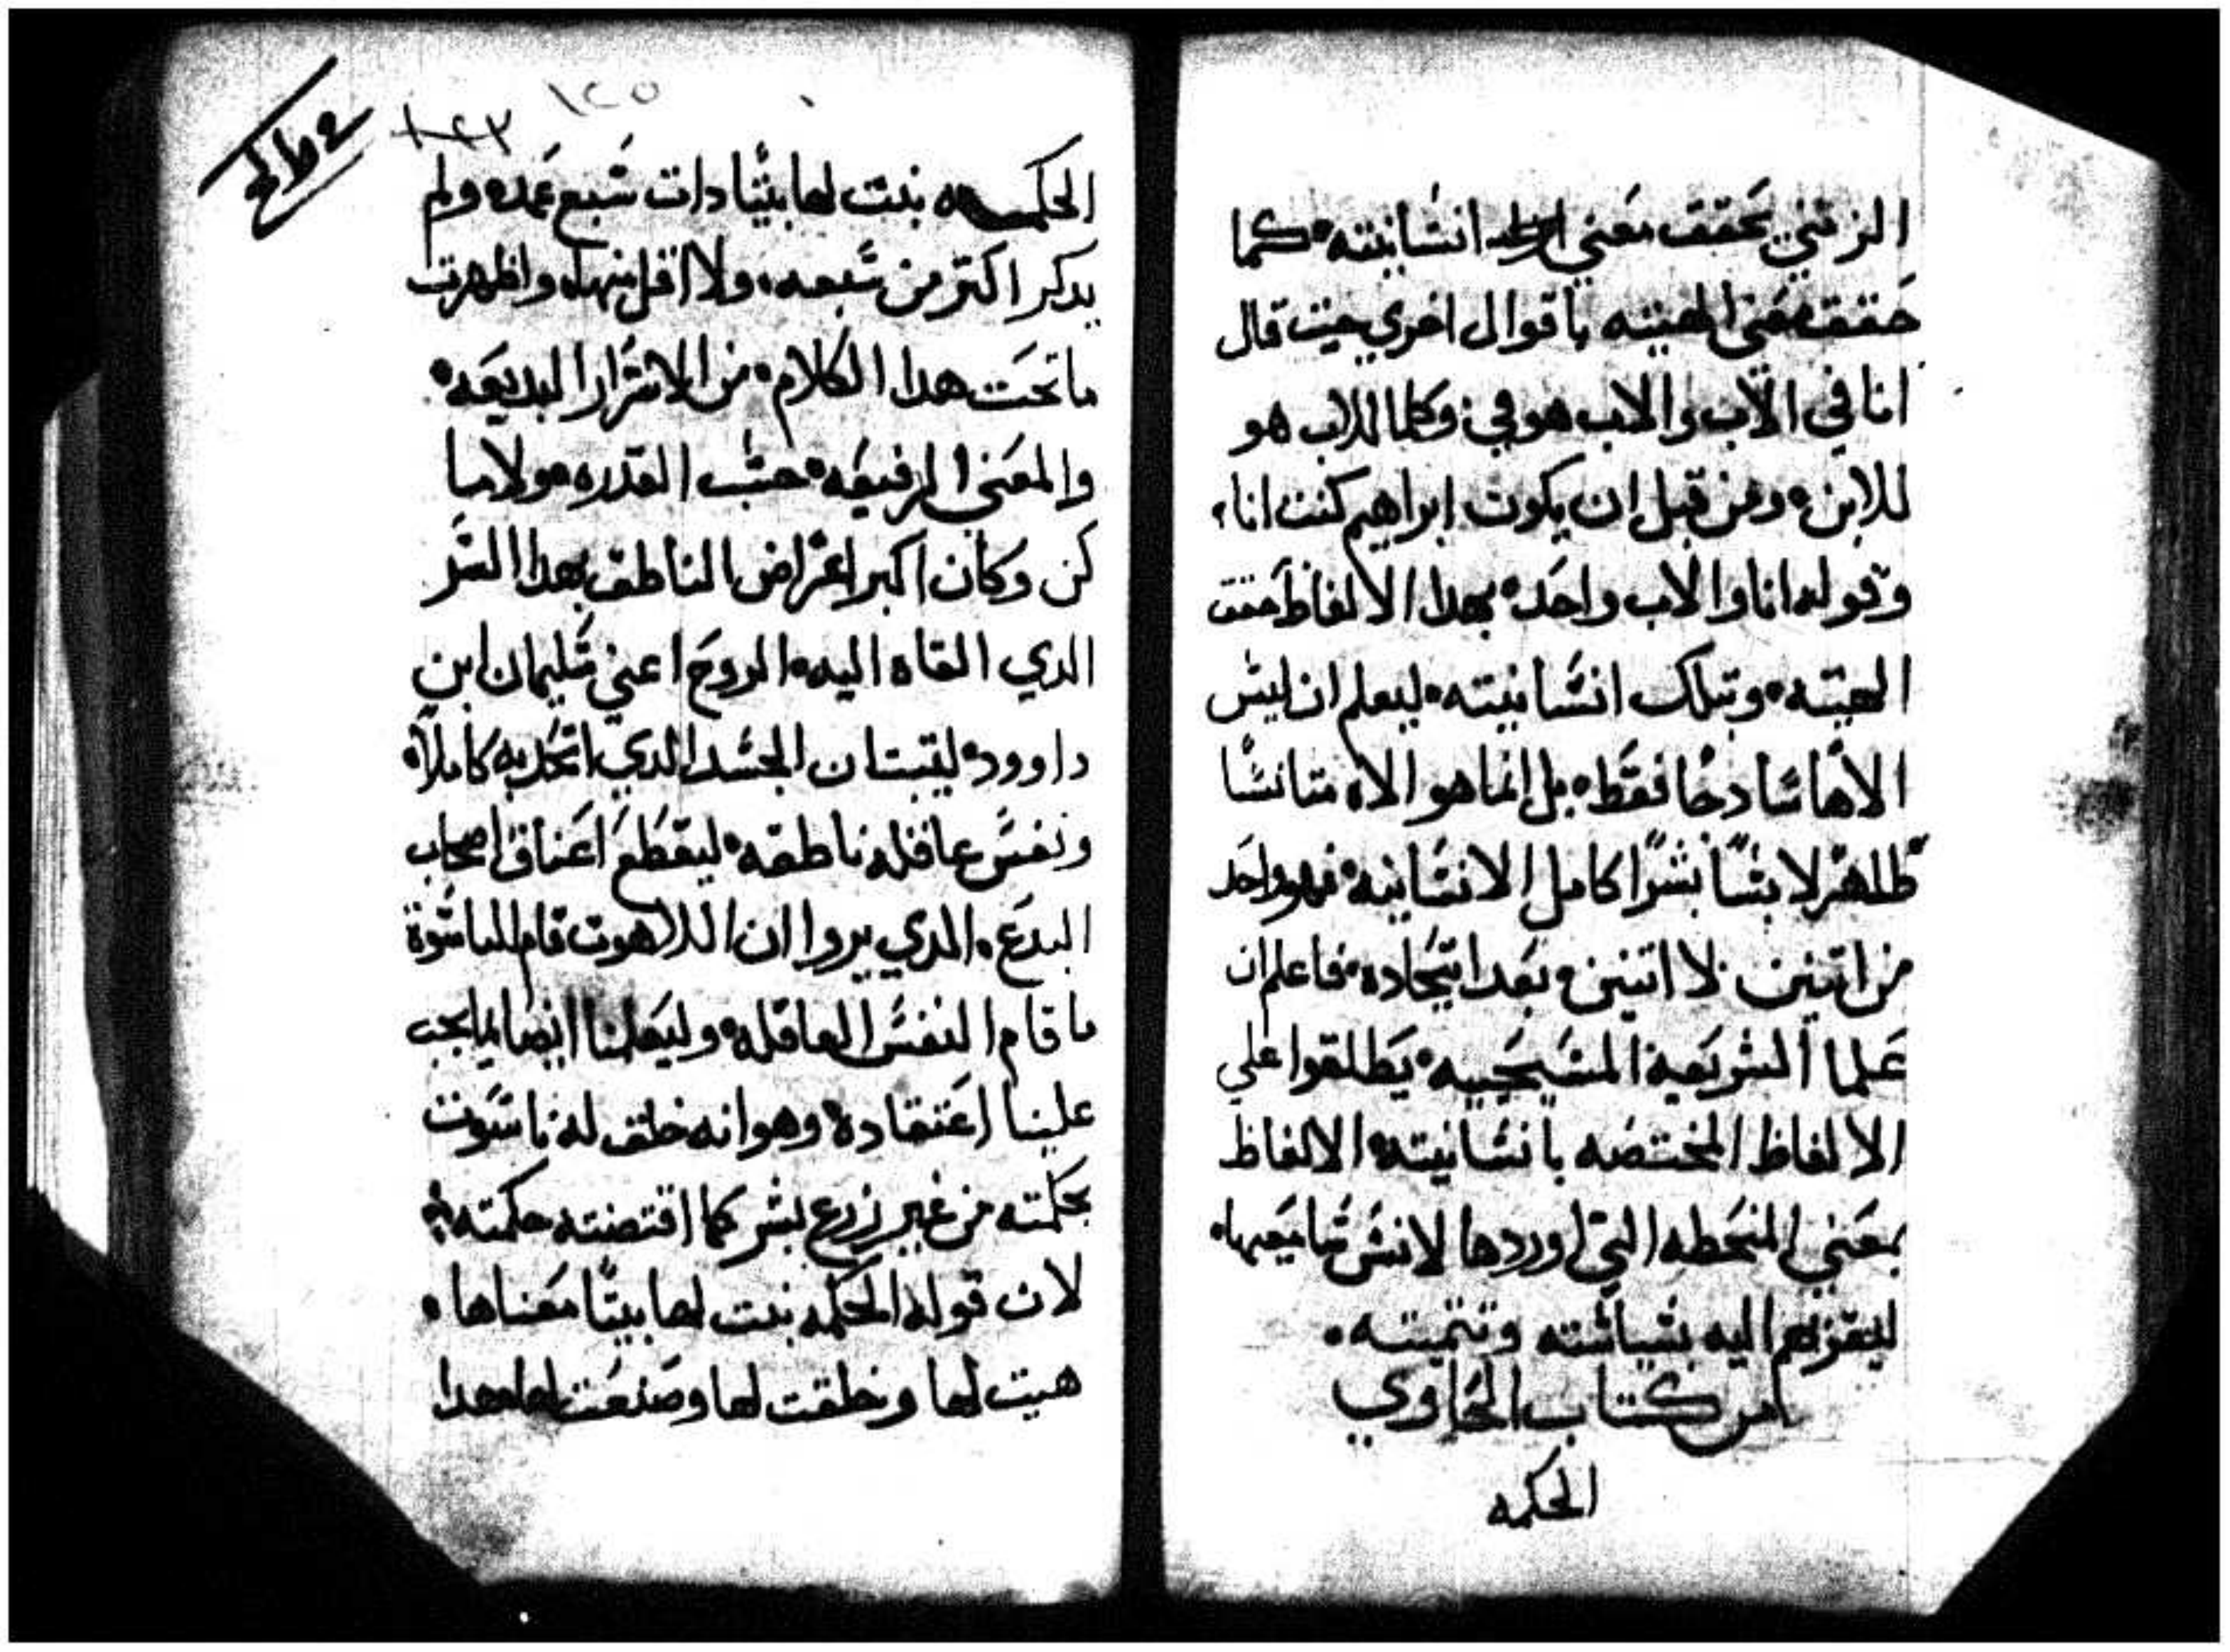 الزتني يحقق معني انشانيته كما
حقق معني الهيته باقوال اخري حيت قال
انا في الاب والاب هو في وكلما للاب هو
للابن ومن قبل ان يكون ابراهيم كنت انا
وقوله انا والاب واحد بهدا الالفاظ حقق
الهيته وتبلك انشانيته ليعلم ان ليش
الاهًا شادجًا فقط بل انما هو الاه متانشًا
ظاهر لابسًا بشرًا كامل الانشانيه فهو واحد
من اتنين لا اتنين بعد اتحاده فاعلم ان
علما الشريعة المشيحييه يطلقوا علي
الالفاظ المختصه بانشانيته الالفاظ
بمعني المنحطه التي اوردها لانش شاميعيها
ليقربهم اليه بشياشته وتتميته
من كتاب الحاوي
الحكمه
١٢٥
١٢٣
الحكمه بنت لها بيتًا دات شبع عمده ولم
يدكر اكتر من شبعه ولا اقل منها واظهرت
ما تحت هدا الكلام من الاشرار البديعه
والمعني الرفيعه حشب القدره ولاما
كن وكان اكبر اغراض الناطق بهدا الشر
الدي القاه اليه الروح اعني شليمان ابن
داوود ليتبت ان الجشد الدي اتحد به كاملاً
ونفش عاقله ناطقه ليقطع اعناق اصحاب
البدع الدي يروا ان اللاهوت قام للناشوة
ما قام النفش العاقله وليعلنا ايضا بما يجب
علينا اعتقاده وهو انه خلق له ناشوت
بحكمته من غير زرع بشر كما اقتضته حكمته
لان قوله الحكمه بنت لها بيتًا معناها
هيت لها وخلقت لها وصنعت لها هدا